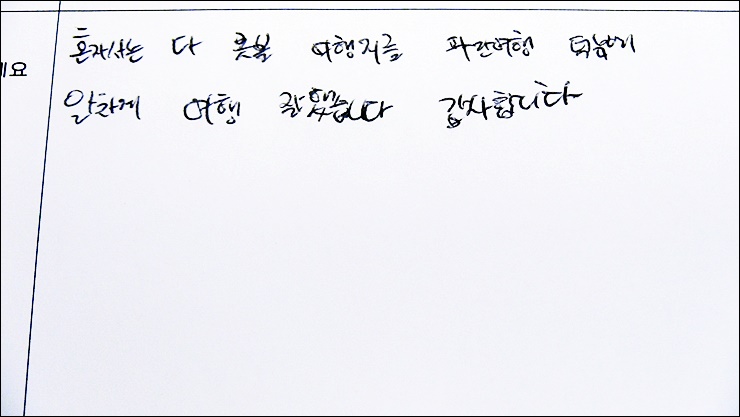 혼자서는 다 못볼 여행지를 파란여행 덕분에
요
알차게 여행 잘했습니다 감사합니다